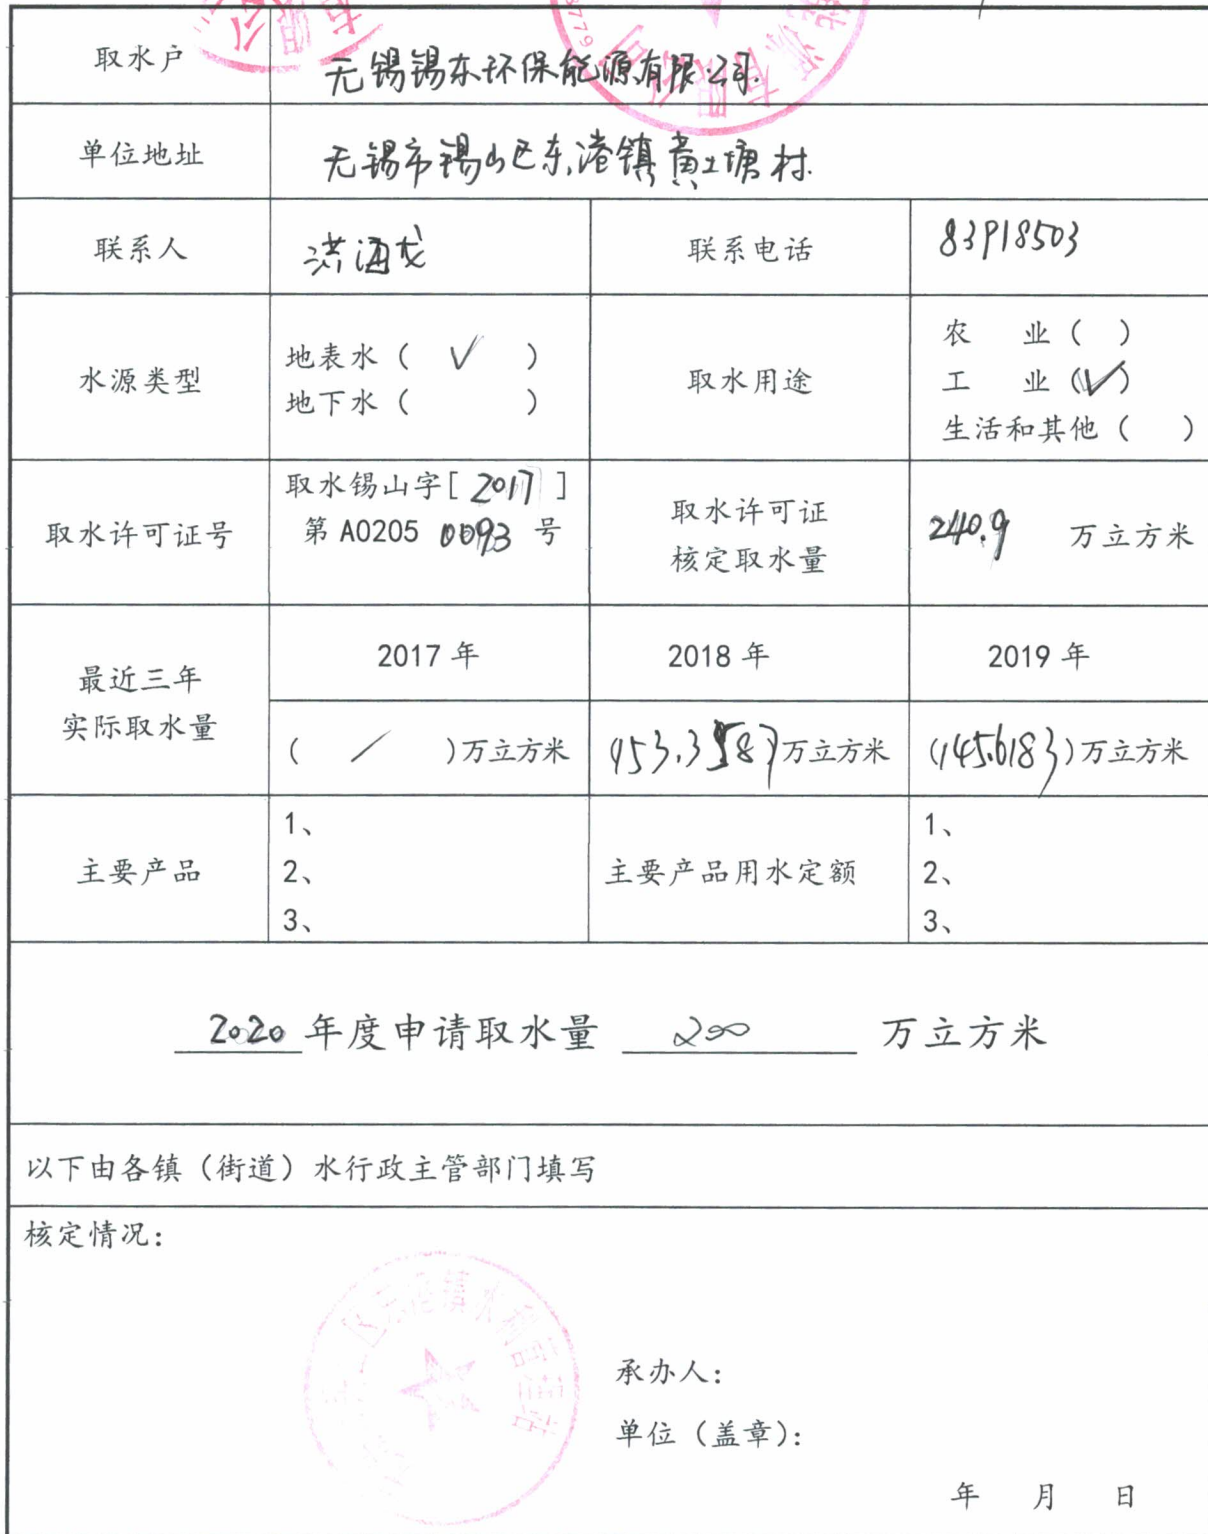 取水户 无锡锡东环保能源有限公司.
单位地址 无锡市锡山区东港镇黄土塘村.
联系人 洪海龙 联系电话 83918503
水源类型 地表水（ √ ） 取水用途 农 业（ ）
地下水（ ） 工 业（√）
生活和其他（ ）
取水许可证号 取水锡山字[ 2017 ] 取水许可证
第 A0205 0093 号 核定取水量 240.9 万立方米
最近三年 2017 年 2018 年 2019 年
实际取水量 （ / ）万立方米 万立方米 （145.6183）万立方米
主要产品 1、 主要产品用水定额 1、
2、 2、
3、 3、
2020 年度申请取水量 200 万立方米
以下由各镇（街道）水行政主管部门填写
核定情况：
区东港镇水利管理站
承办人：
单位（盖章）：
年 月 日